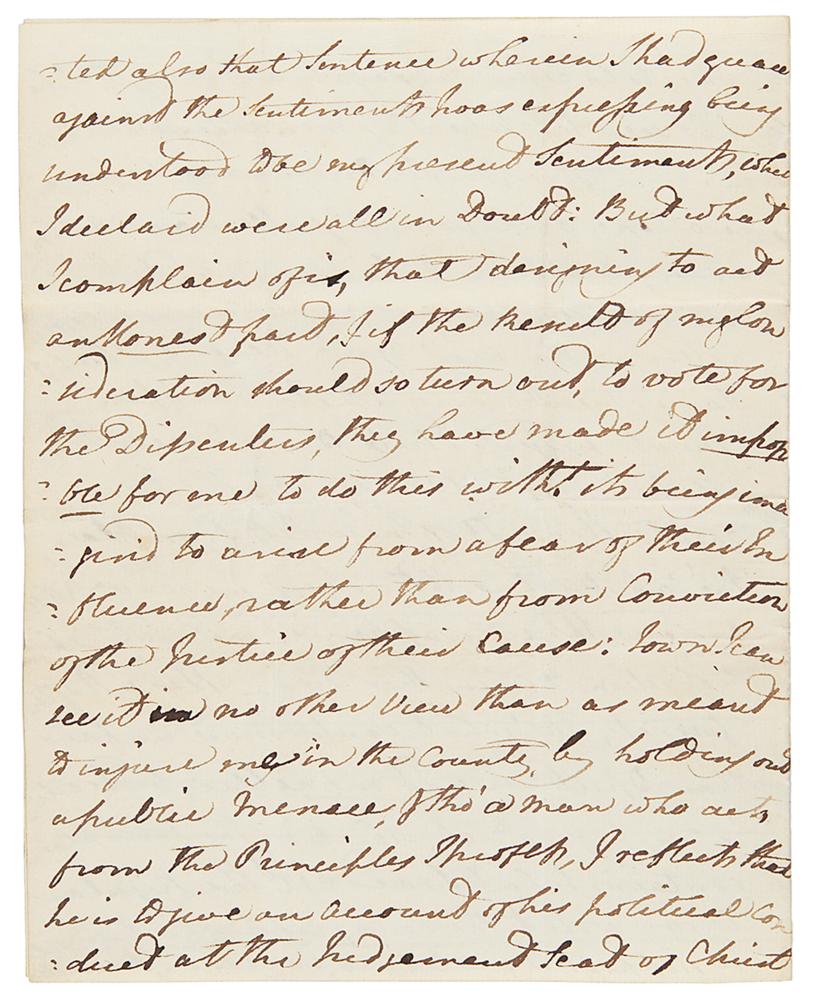 =ted also that Sentence wherein I had guarded
against the Sentiments I was expressing being
understood to be my present Sentiments, which
I declar'd were all in Doubt: But what
I complain of is, that designing to act
an Honest part, & if the Result of my Con
=sideration should so turn out, to vote for
the Dissenters, they have made it impossi
=ble for me to do this witht. its being ima
=gin'd to arise from a fear of their In
=fluence, rather than from Conviction
of the Justice of their Cause: I own I can
see it in no other View than as meant
to injure me in the County, by holding out
a public Menace, & tho' a man who acts
from the Principles I profess, & reflects that
he is to give an account of his political Con
=duct at the Judgement Seat of Christ